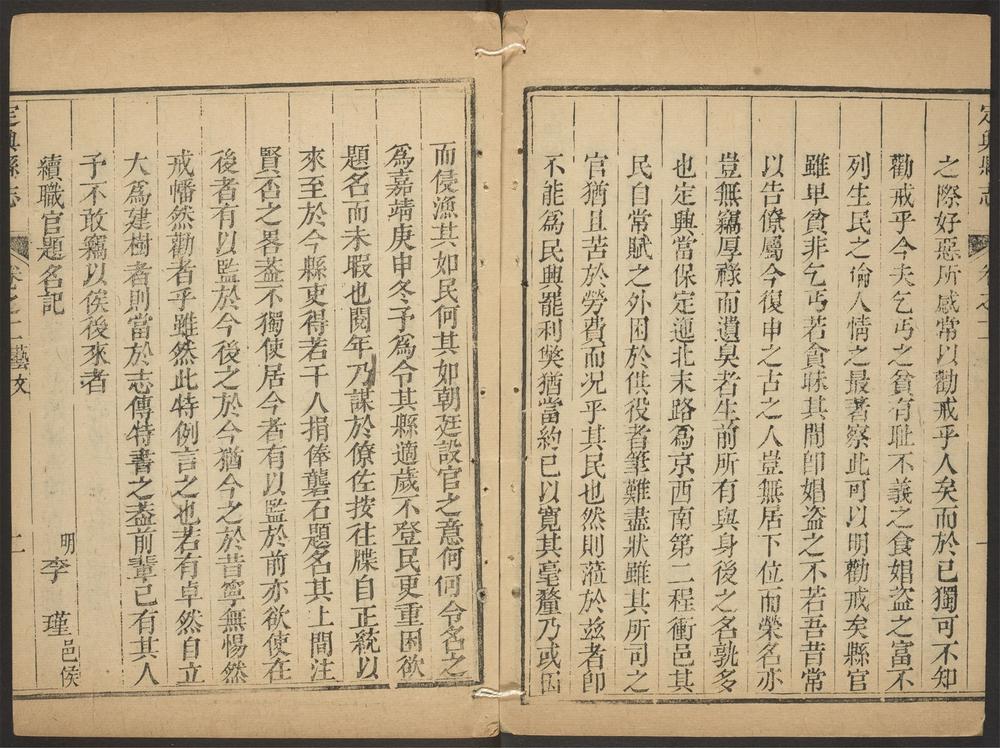 定興縣志
卷之
之際好惡所感常以勸戒乎人矣而於己獨可不知
勸戒乎今夫乞丐之貧有耻不義之食娼盗之富不
列生民之倫人情之最著察此可以明勸戒矣縣官
雖卑貧非乞丐若貪昧其間卽娼盗之不若吾昔常
以告僚屬今復申之古之人豈無居下位而榮名亦
豈無竊厚祿而遺臭者生前所有與身後之名孰多
也定興當保定迤北末路爲京西南第二程衝邑其
民自常賦之外困於供役者筆難盡狀雖其所司之
官猶且苦於勞費而况乎其民也然則蒞於兹者卽
不能爲民興罷利獘猶當約己以寬其毫釐乃或因
而侵漁其如民何其如朝廷設官之意何何令名之
爲嘉靖庚申冬予爲令其縣適歲不登民吏重困欲
題名而未暇也閱年乃謀於僚佐按往牒自正統以
來至於今縣吏得若干人捐俸礱石題名其上間注
賢否之畧葢不獨使居今者有以監於前亦欲使在
後者有以監於今後之於今猶今之於昔寧無惕然
戒幡然勸者乎雖然此特例言之也若有卓然自立
大爲建樹者則當於志傳特書之葢前輩已有其人
予不敢竊以俟後來者
續職官題名記
明李瑾邑侯
定興縣志
卷之二藝文
二